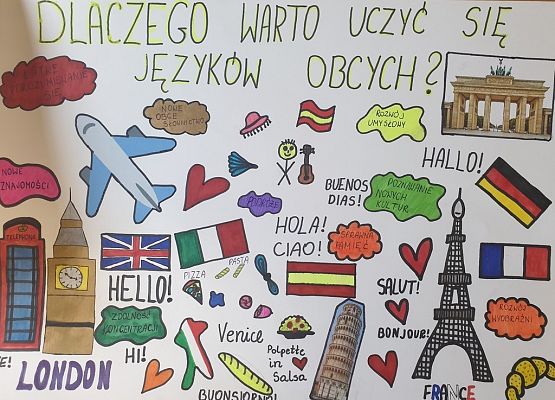 DLACZEGO WARTO UCZYĆ SIĘ
JĘZYKÓW OBCYCH?
ŁATWE
POROZUMIEWANIE
SIĘ
NOWE
OBCE
SŁOWNICTWO
ROZWÓJ
UMYSŁOWY
HALLO!
NOWE
ZNAJOMOŚCI
PODRÓŻE
BUENOS
DIAS!
POZNAWANIE
NOWYCH
KULTUR
TELEPHONE
HOLA!
CIAO!
SPRAWNA
PAMIĘĆ
PIZZA
PASTA
HELLO!
SALUT!
ZDOLNOŚĆ
KONCENTRACJI
ROZWÓJ
WYOBRAŹNI
HI!
Venice
BONJOUR!
Polpette
in
Salsa
LONDON
BUONGIORNO!
FRANCE